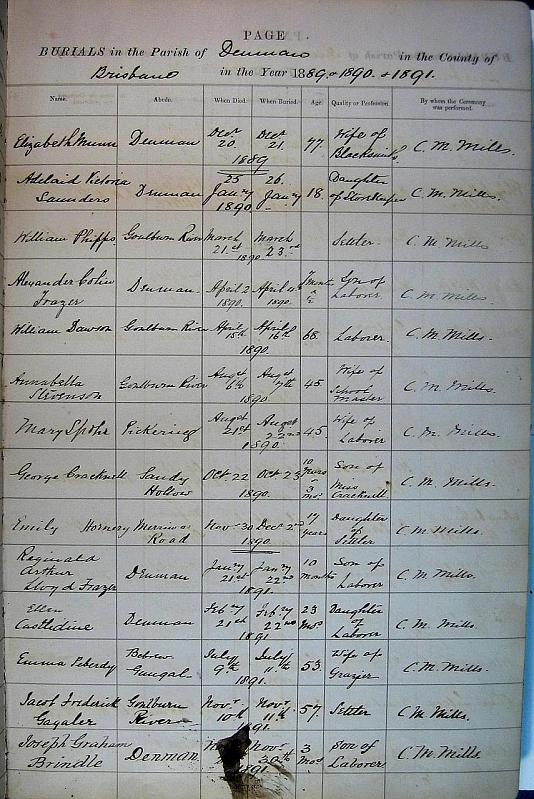 PAGE
BURIALS in the Parish of Denman in the County of
Brisbane in the Year 1889. 1890. & 1891.
Name. Abode. When Died. When Buried. Age Quality or Profession. By whom the Ceremony was performed.
Elizabeth Munn Denman Decr 20. Decr 21. 77 Wife of Blacksmith C. M. Mills.
1889
Adelaid Victoria Saunders Denman 25 Jany 26. Jany 18. Daughter of Storekeeper C. M. Mills.
1890
William Phipps Goulburn River March 21st March 23rd Settler. C. M. Mills
1890
Alexander Colin Frazer Denman. April 2 1890. April 1890. Son of Laborer C. M. Mills.
William Dawson Goulburn River April 15th April 16th 68. Laborer. C. M. Mills.
1890.
Annabella Stevenson Goulburn River Augst 6th Augst 7th 45 Wife of School Master C. M. Mills.
1890
Mary Spohr Pickering Augst 21st Augst 22nd 45. Wife of Laborer C. M. Mills.
1890.
George Cracknell Sandy Hollow Oct. 22 Oct 23 10 years & 3 mos Son of Miss Cracknell C. M. Mills.
1890.
Emily Hornery Merriwa Road Nov. 30 Decr 2nd 17 years Daughter of Settler C. M. Mills.
1890
Reginald Arthur Lloyd Frazer Denman Jany 21st Jany 22nd 10 months Son of Laborer C. M. Mills.
1891.
Ellen Castledine Denman Feby 21st Feby 22nd 23 Mos Daughter of Laborer C. M. Mills.
1891
Emma Peberdy Gungal July 9th July 11th 53. Wife of Grazier C. M. Mills.
1891
Jacob Frederick Gagaler Goulburn River Novr 10th Novr 11th 57. Settler C. M. Mills.
1891.
Joseph Graham Brindle Denman. Novr 30th 3 mos Son of Laborer. C. M. Mills.
1891